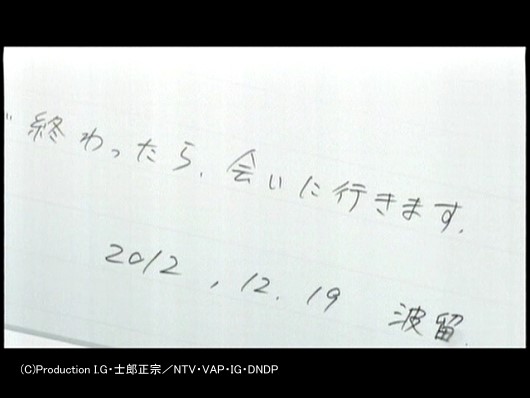 終わったら、会いに行きます。
2012, 12. 19 波留
(C)Production I.G・士郎正宗／NTV・VAP・IG・DNDP